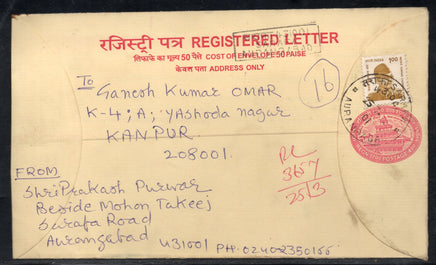 रजिस्ट्री पत्र REGISTERED LETTER
लिफाफे का मूल्य 50 पैसे COST OF ENVELOPE 50 PAISE
केवल पता ADDRESS ONLY
16
To
Ganesh Kumar OMAR
K-4; A; Yashoda nagar
KANPUR.
208001.
FROM
Shri Prakash Purwar
Beside Mohan Takeej
Sarafa Road
Aurangabad 431001 PH. 02402350166
RL
3657
25/3
INDIA
100